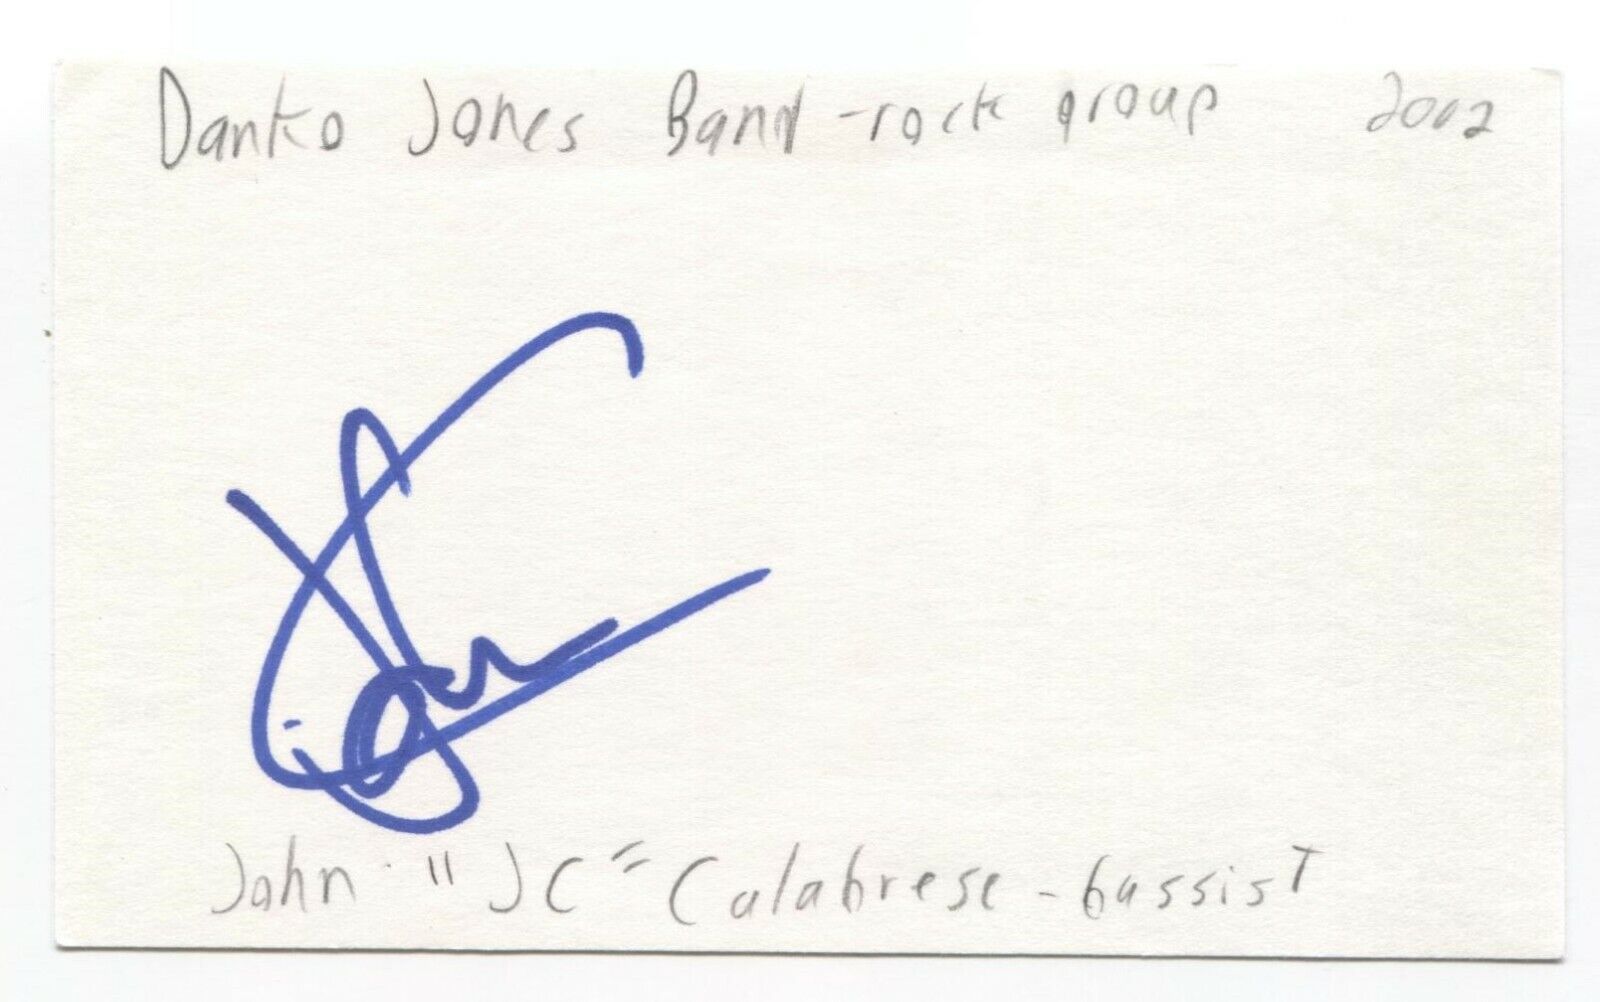 Danko Jones Band - rock group 2002
John "JC" Calabrese - bassist